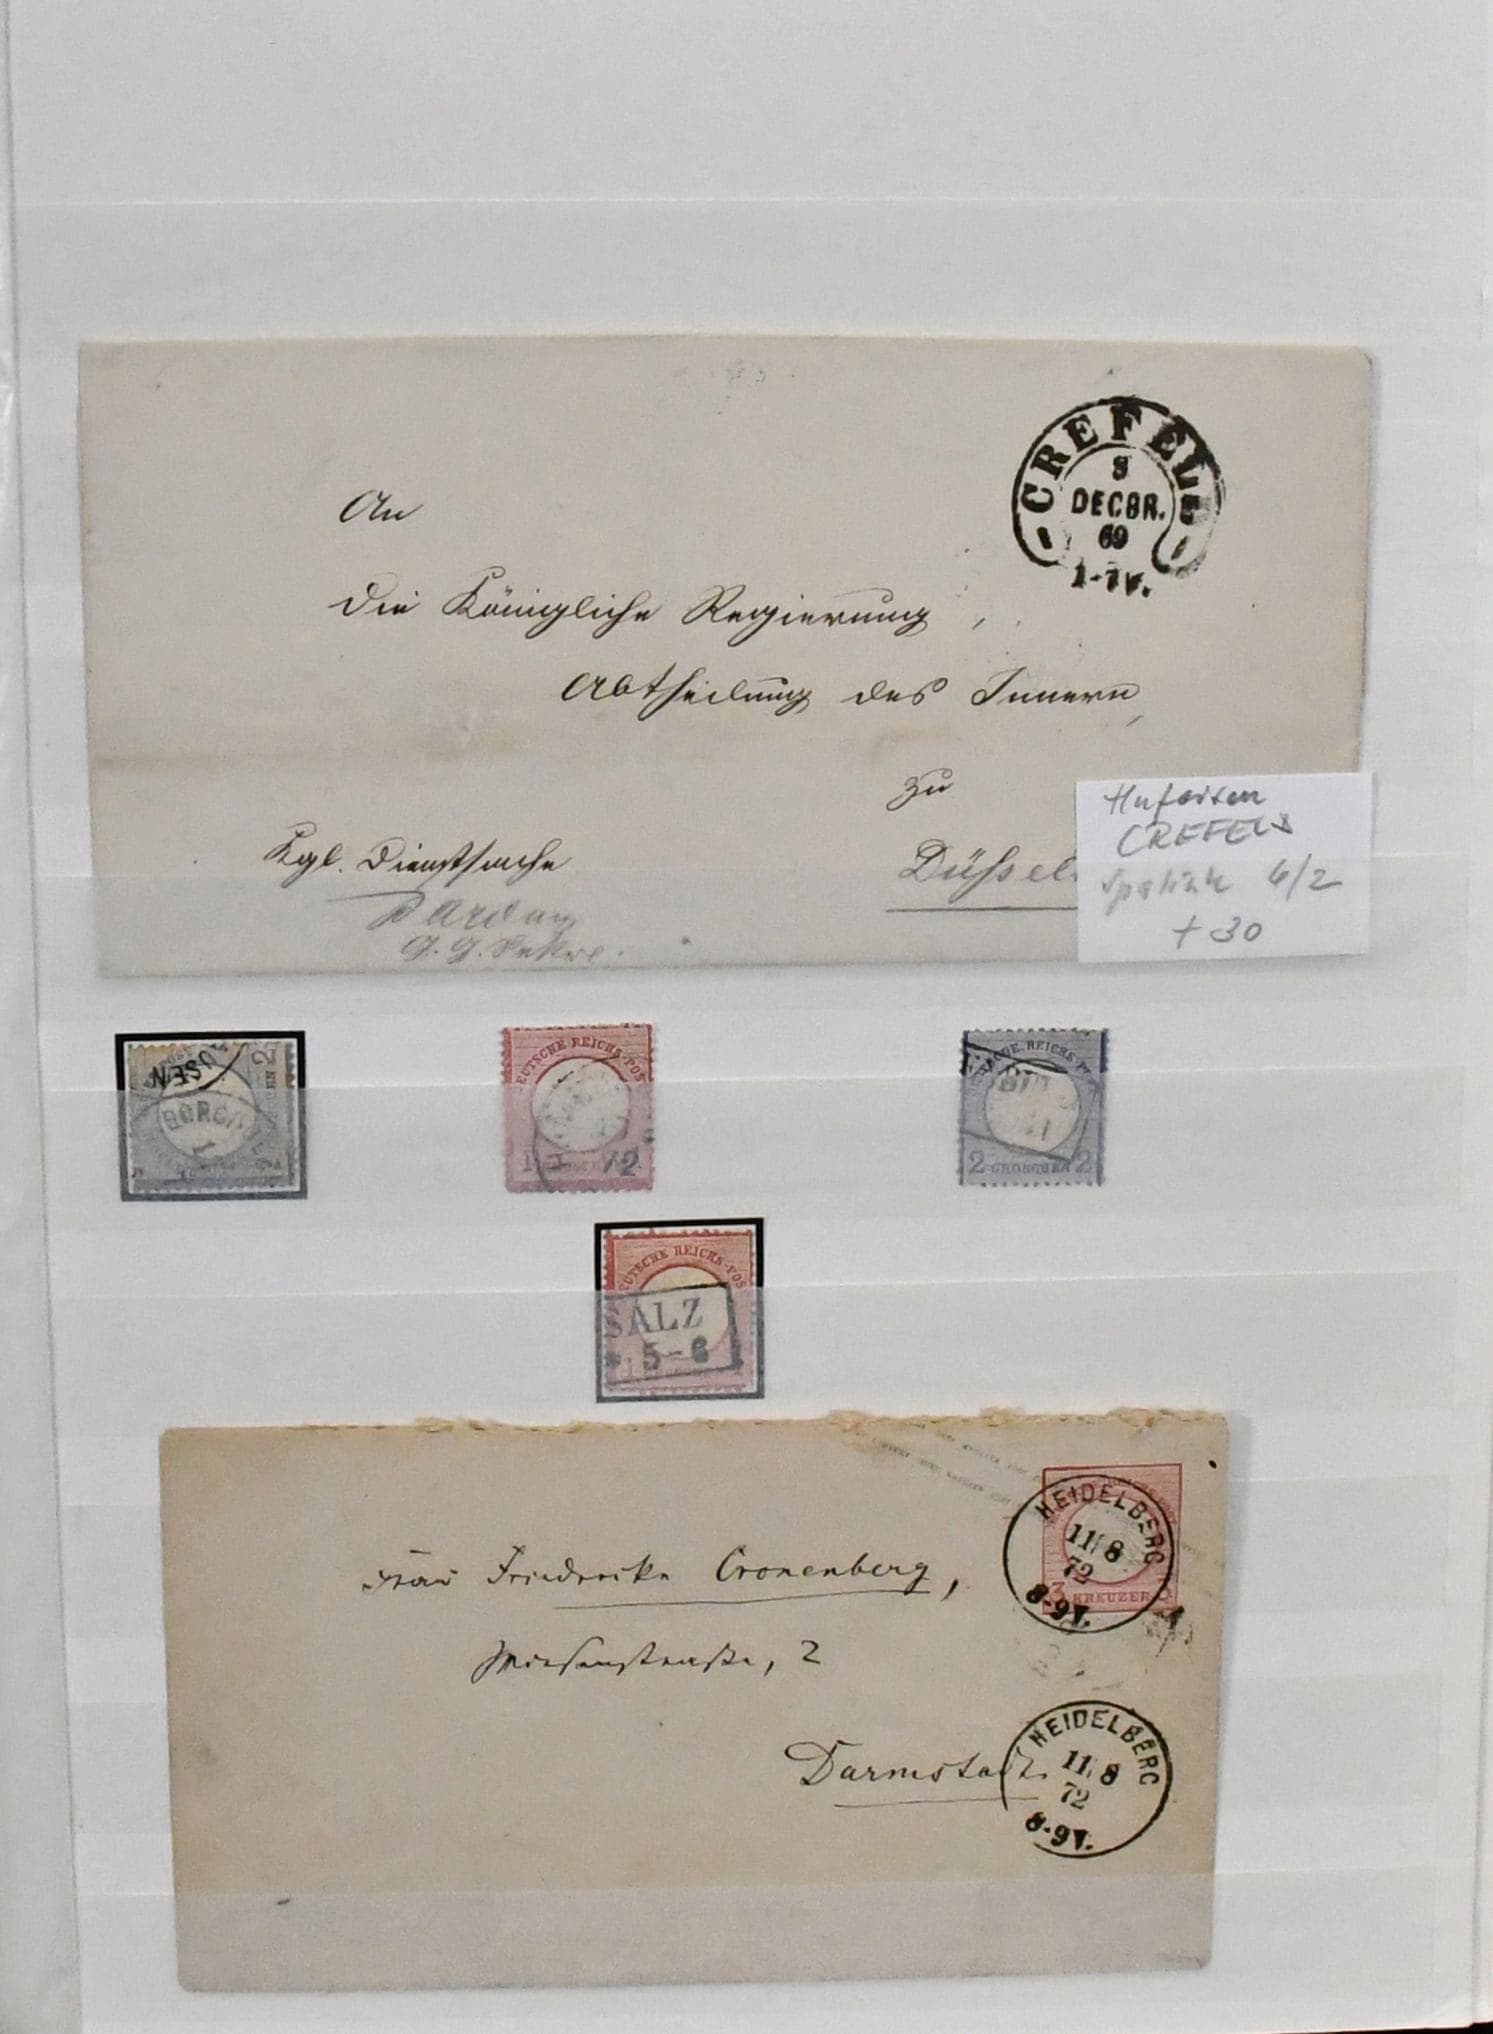 CREFELD
8
DECBR.
69
1-7V.
An
die Königliche Regierung,
Abtheilung des Innern,
zu
Düssel
Kgl. Dienstsache
Hufeisen
CREFELD
Spalink 6/2
+ 30
USEN
2
DEUTSCHE REICHS-POS
1
72
REICHS-P
2 GROSCHEN 2
DEUTSCHE REICHS-POS
SALZ
5-6
HEIDELBERG
11 8
72
8-9V.
3 KREUZER
Frau Friederike Cronenberg,
Wiesenstraße, 2
Darmstadt.
HEIDELBERG
11 8
72
8-9V.